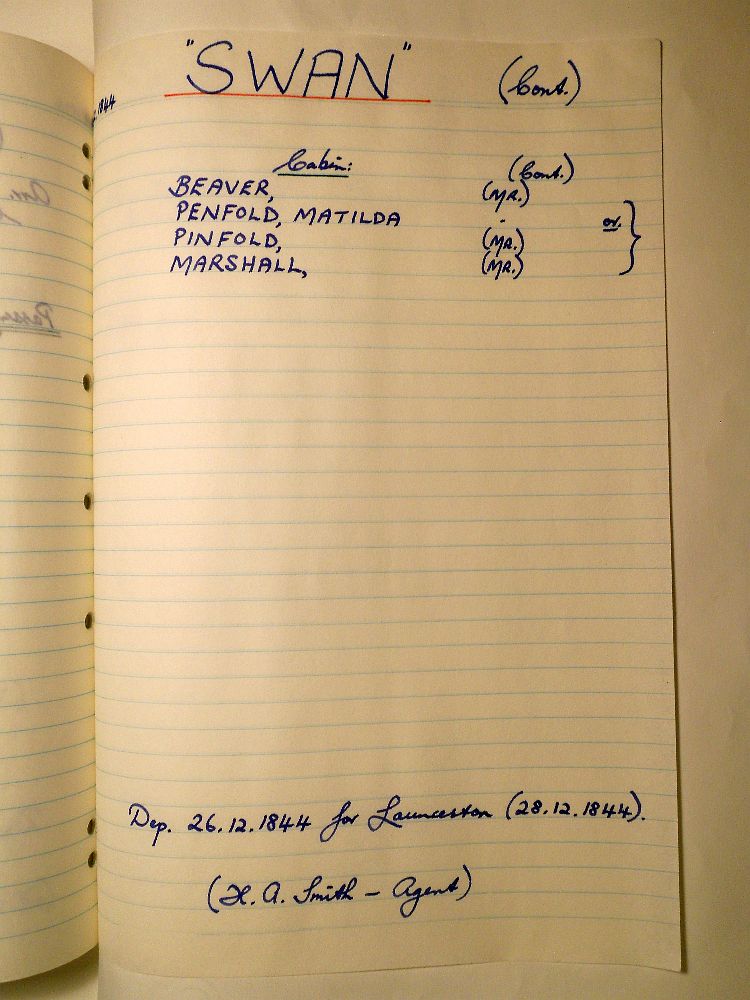 "SWAN" (Cont.)
.1844
Cabin: (Cont.)
BEAVER, (MR.)
PENFOLD, MATILDA - or.
PINFOLD, (MR.)
MARSHALL, (MR.)
Dep. 26.12.1844 for Launceston (28.12.1844).
(H. A. Smith - Agent)